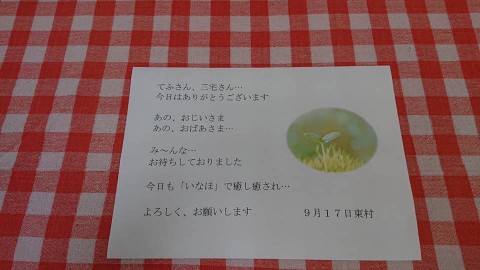 てふさん、三宅さん…
今日はありがとうございます
あの、おじいさま
あの、おばあさま…
み～んな…
お待ちしておりました
今日も「いなほ」で癒し癒され…
よろしく、お願いします
９月１７日東村